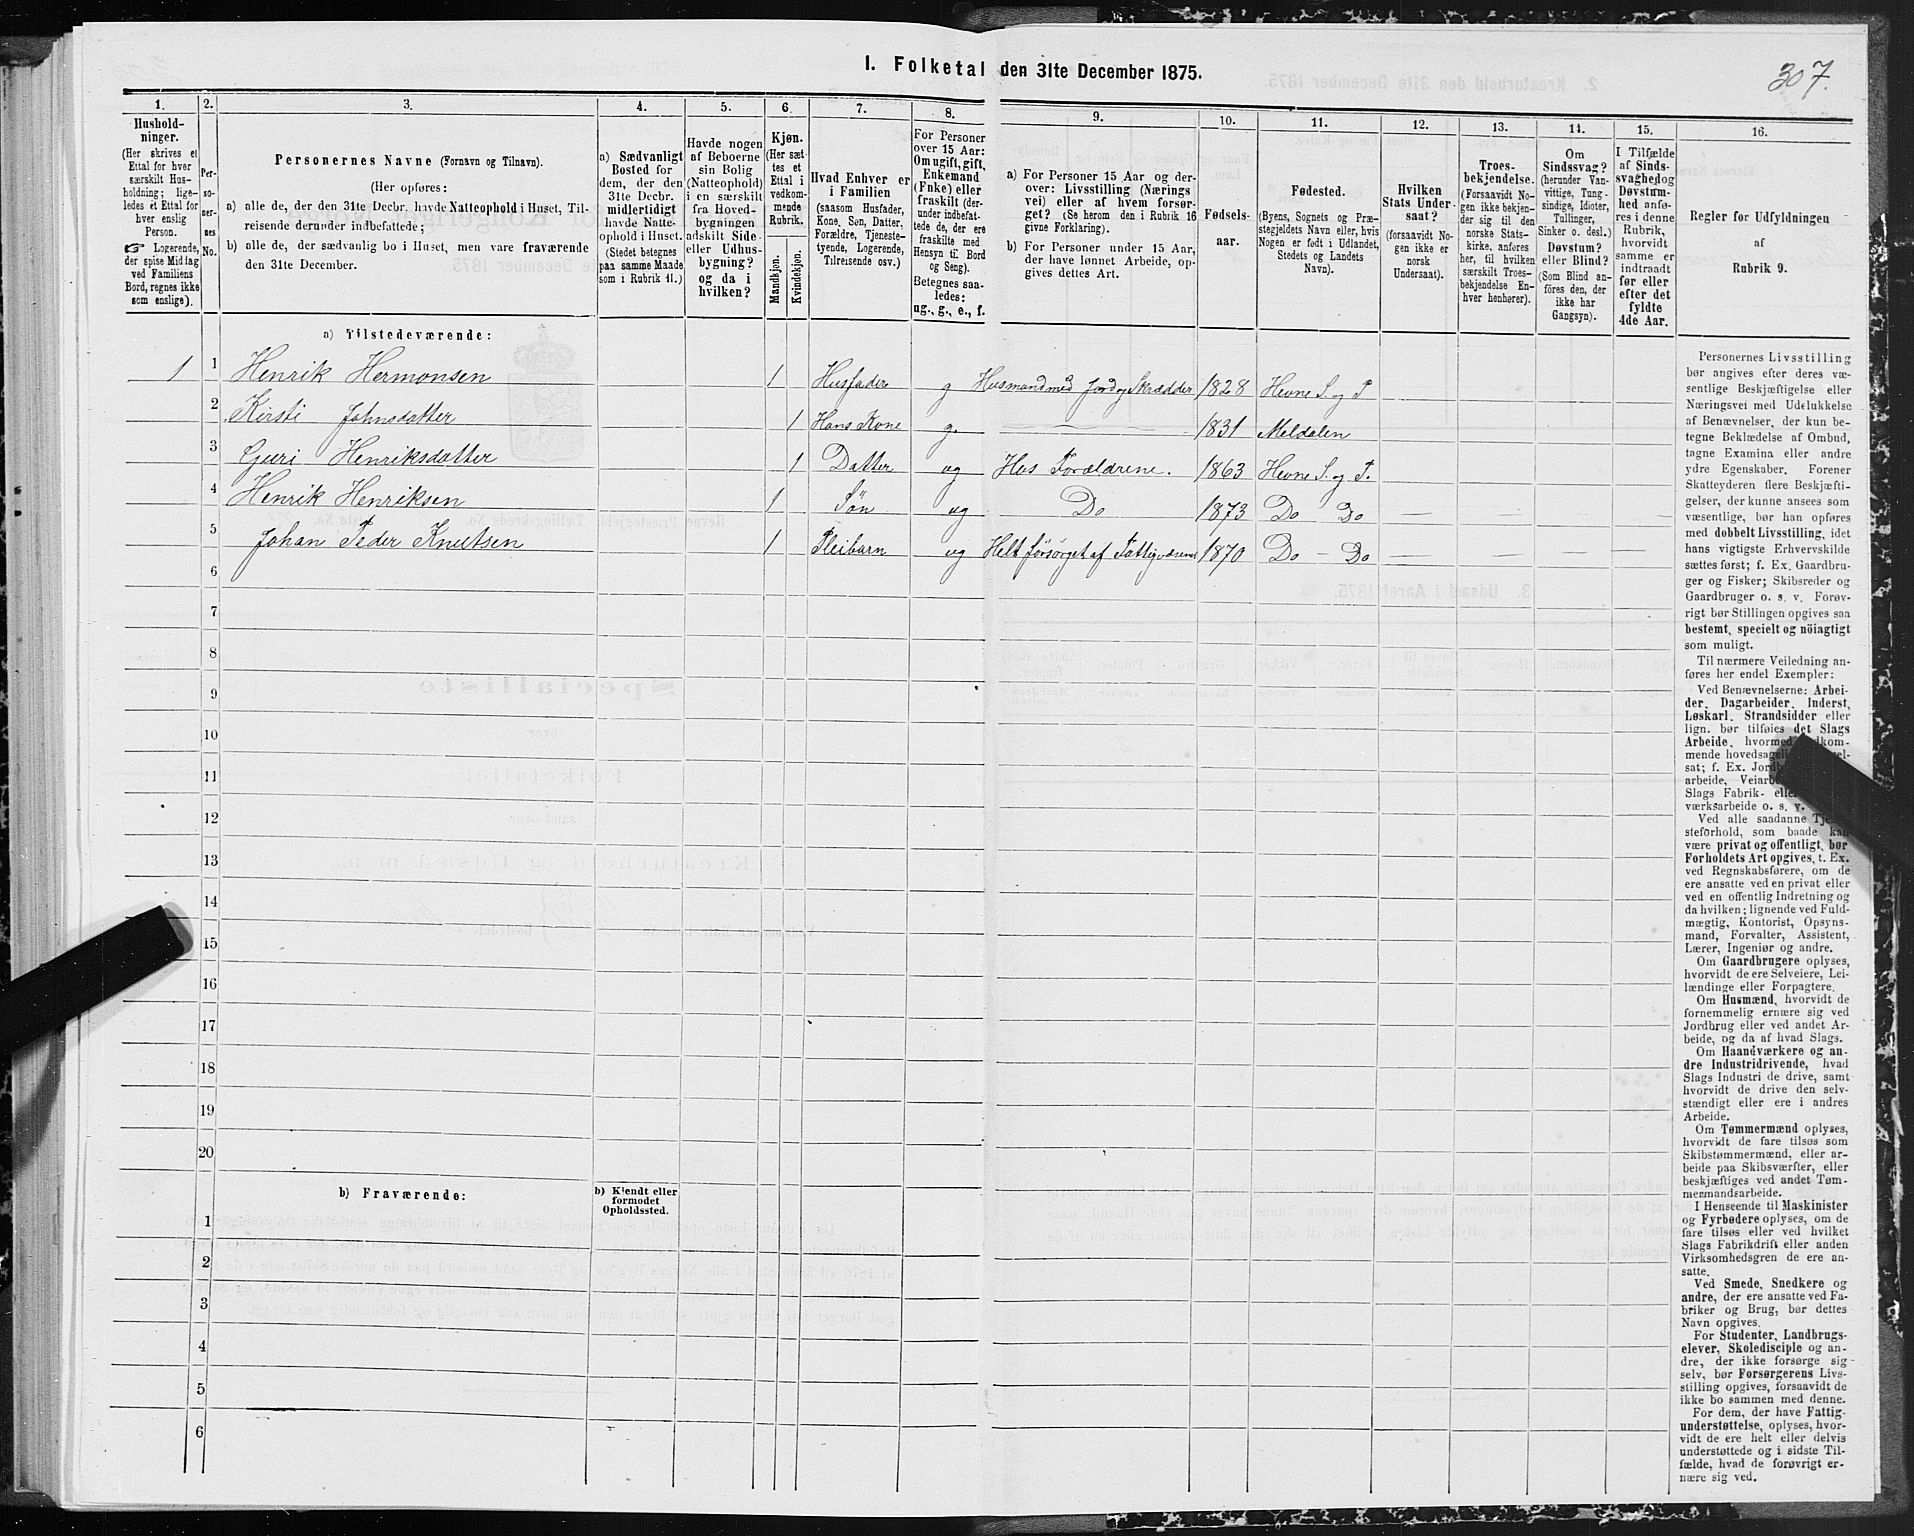 I. Folketal den 31te December 1875.
307.
1.
2.
3.
4.
5.
6.
7.
8.
9.
10.
11.
12.
13.
14.
15.
16.
Hushold-
ninger.
(Her skrives et
Ettal for hver
særskilt Hus-
holdning; lige-
ledes et Ettal for
hver enslig
Person.
☞ Logerende,
der spise Middag
ved Familiens
Bord, regnes ikke
som enslige).
Per-
so-
ner-
nes
No.
Personernes Navne (Fornavn og Tilnavn).
(Her opføres:
a) alle de, der den 31te Decbr. havde Natteophold i Huset, Til-
reisende derunder indbefattede;
b) alle de, der sædvanlig bo i Huset, men vare fraværende
den 31te December.
a) Sædvanligt
Bosted for
dem, der den
31te Decbr.
midlertidigt
havde Natte-
ophold i Huset.
(Stedet betegnes
paa samme Maade
som i Rubrik 11.)
Havde nogen
af Beboerne
sin Bolig
(Natteophold)
i en særskilt
fra Hoved-
bygningen
adskilt Side-
eller Udhus-
bygning?
og da i
hvilken?
Kjøn.
(Her sæt-
tes et
Ettal i
vedkom-
mende
Rubrik.
Mandkjøn.
Kvindekjøn.
Hvad Enhver er
i Familien
(saasom Husfader,
Kone, Søn, Datter,
Forældre, Tjeneste-
tyende, Logerende,
Tilreisende osv.)
For Personer
over 15 Aar:
Om ugift, gift,
Enkemand
(Enke) eller
fraskilt (der-
under indbefat-
tede de, der ere
fraskilte med
Hensyn til Bord
og Seng).
Betegnes saa-
ledes:
ug., g., e., f.
a) For Personer 15 Aar og der-
over: Livsstilling (Nærings
vei) eller af hvem forsør-
get? (Se herom den i Rubrik 16
givne Forklaring).
b) For Personer under 15 Aar,
der have lønnet Arbeide, op-
gives dettes Art.
Fødsels-
aar.
Fødested.
(Byens, Sognets og Præ-
stegjeldets Navn eller, hvis
Nogen er født i Udlandet,
Stedets og Landets
Navn).
Hvilken
Stats Under-
saat?
(forsaavidt No-
gen ikke er
norsk
Undersaat).
Troes-
bekjendelse.
(Forsaavidt No-
gen ikke bekjen-
der sig til den
norske Stats-
kirke, anføres
her, til hvilken
særskilt Troes-
bekjendelse En-
hver henhører).
Om
Sindssvag?
(herunder Van-
vittige, Tung-
sindige, Idioter,
Tullinger,
Sinker o. desl.)
Døvstum?
eller Blind?
(Som Blind an-
føres den, der
ikke har
Gangsyn).
I Tilfælde
af Sinds-
svaghed og
Døvstum-
hed anfø-
res i denne
Rubrik,
hvorvidt
samme er
indtraadt
før eller
efter det
fyldte
4de Aar.
Regler for Udfyldningen
af
Rubrik 9.
a) Tilstedeværende:
1 1 Henrik Hermonsen 1 Husfader g Husmand med Jord og Skrædder 1828 Hevne S. og P
2 Kirsti Johnsdatter 1 Hans Kone g. — 1831 Meldalen
3 Guri Henriksdatter 1 Datter ug Hos Forældrene. 1863 Hevne S. og P.
4 Henrik Henriksen 1 Søn ug Do 1873 Do Do — —
5 Johan Peder Knutsen 1 Pleibarn ug Helt forsørget af Fattigvæsenet 1870 Do — Do — — — —
6
7
8
9
10
11
12
13
14
15
16
17
18
19
20
b) Fraværende:
b) Kjendt eller
formodet
Opholdssted.
1
2
3
4
5
6
Personernes Livsstilling
bør angives efter deres væ-
sentlige Beskjæftigelse eller
Næringsvei med Udelukkelse
af Benævnelser, der kun be-
tegne Beklædelse af Ombud,
tagne Examina eller andre
ydre Egenskaber. Forener
Skatteyderen flere Beskjæfti-
gelser, der kunne ansees som
væsentlige, bør han opføres
med dobbelt Livsstilling, idet
hans vigtigste Erhvervskilde
sættes først; f. Ex. Gaardbru-
ger og Fisker; Skibsreder og
Gaardbruger o. s. v. Forøv-
rigt bør Stillingen opgives saa
bestemt, specielt og nöiagtigt
som muligt.
Til nærmere Veiledning an-
føres her endel Exempler:
Ved Benævnelserne: Arbei-
der, Dagarbeider, Inderst,
Løskarl, Strandsidder eller
lign. bør tilføies det Slags
Arbeide, hvormed
mende
sat; f. Ex.
arbeide,
Slags Fabrik-
værksarbeide o. s. v.
Ved alle saadanne
steforhold, som baade kan
være privat og offentligt, bør
Forholdets Art opgives, t. Ex.
ved Regnskabsførere, om de
ere ansatte ved en privat eller
ved en offentlig Indretning og
da hvilken; lignende ved Fuld-
mægtig, Kontorist, Opsyns-
mand, Forvalter, Assistent,
Lærer, Ingeniør og andre.
Om Gaardbrugere oplyses,
hvorvidt de ere Selveiere, Lei-
lændinge eller Forpagtere.
Om Husmænd, hvorvidt de
fornemmelig ernære sig ved
Jordbrug eller ved andet Ar-
beide, og da af hvad Slags.
Om Haandværkere og an-
dre Industridrivende, hvad
Slags Industri de drive, samt
hvorvidt de drive den selv-
stændigt eller ere i andres
Arbeide.
Om Tømmermænd oplyses,
hvorvidt de fare tilsøs som
Skibstømmermænd, eller ar-
beide paa Skibsværfter, eller
beskjæftiges ved andet Tøm-
mermandsarbeide.
I Henseende til Maskinister
og Fyrbødere oplyses, om de
fare tilsøs eller ved hvilket
Slags Fabrikdrift eller anden
Virksomhedsgren de ere an-
satte.
Ved Smede, Snedkere og
andre, der ere ansatte ved Fa-
briker og Brug, bør dettes
Navn opgives.
For Studenter, Landbrugs-
elever, Skoledisciple og an-
dre, der ikke forsørge sig
selv, bør Forsørgerens Livs-
stilling opgives, forsaavidt de
ikke bo sammen med denne.
For dem, der have Fattig-
understøttelse, oplyses, hvor-
vidt de ere helt eller delvis
understøttede og i sidste Til-
fælde, hvad de forøvrigt er-
nære sig ved.